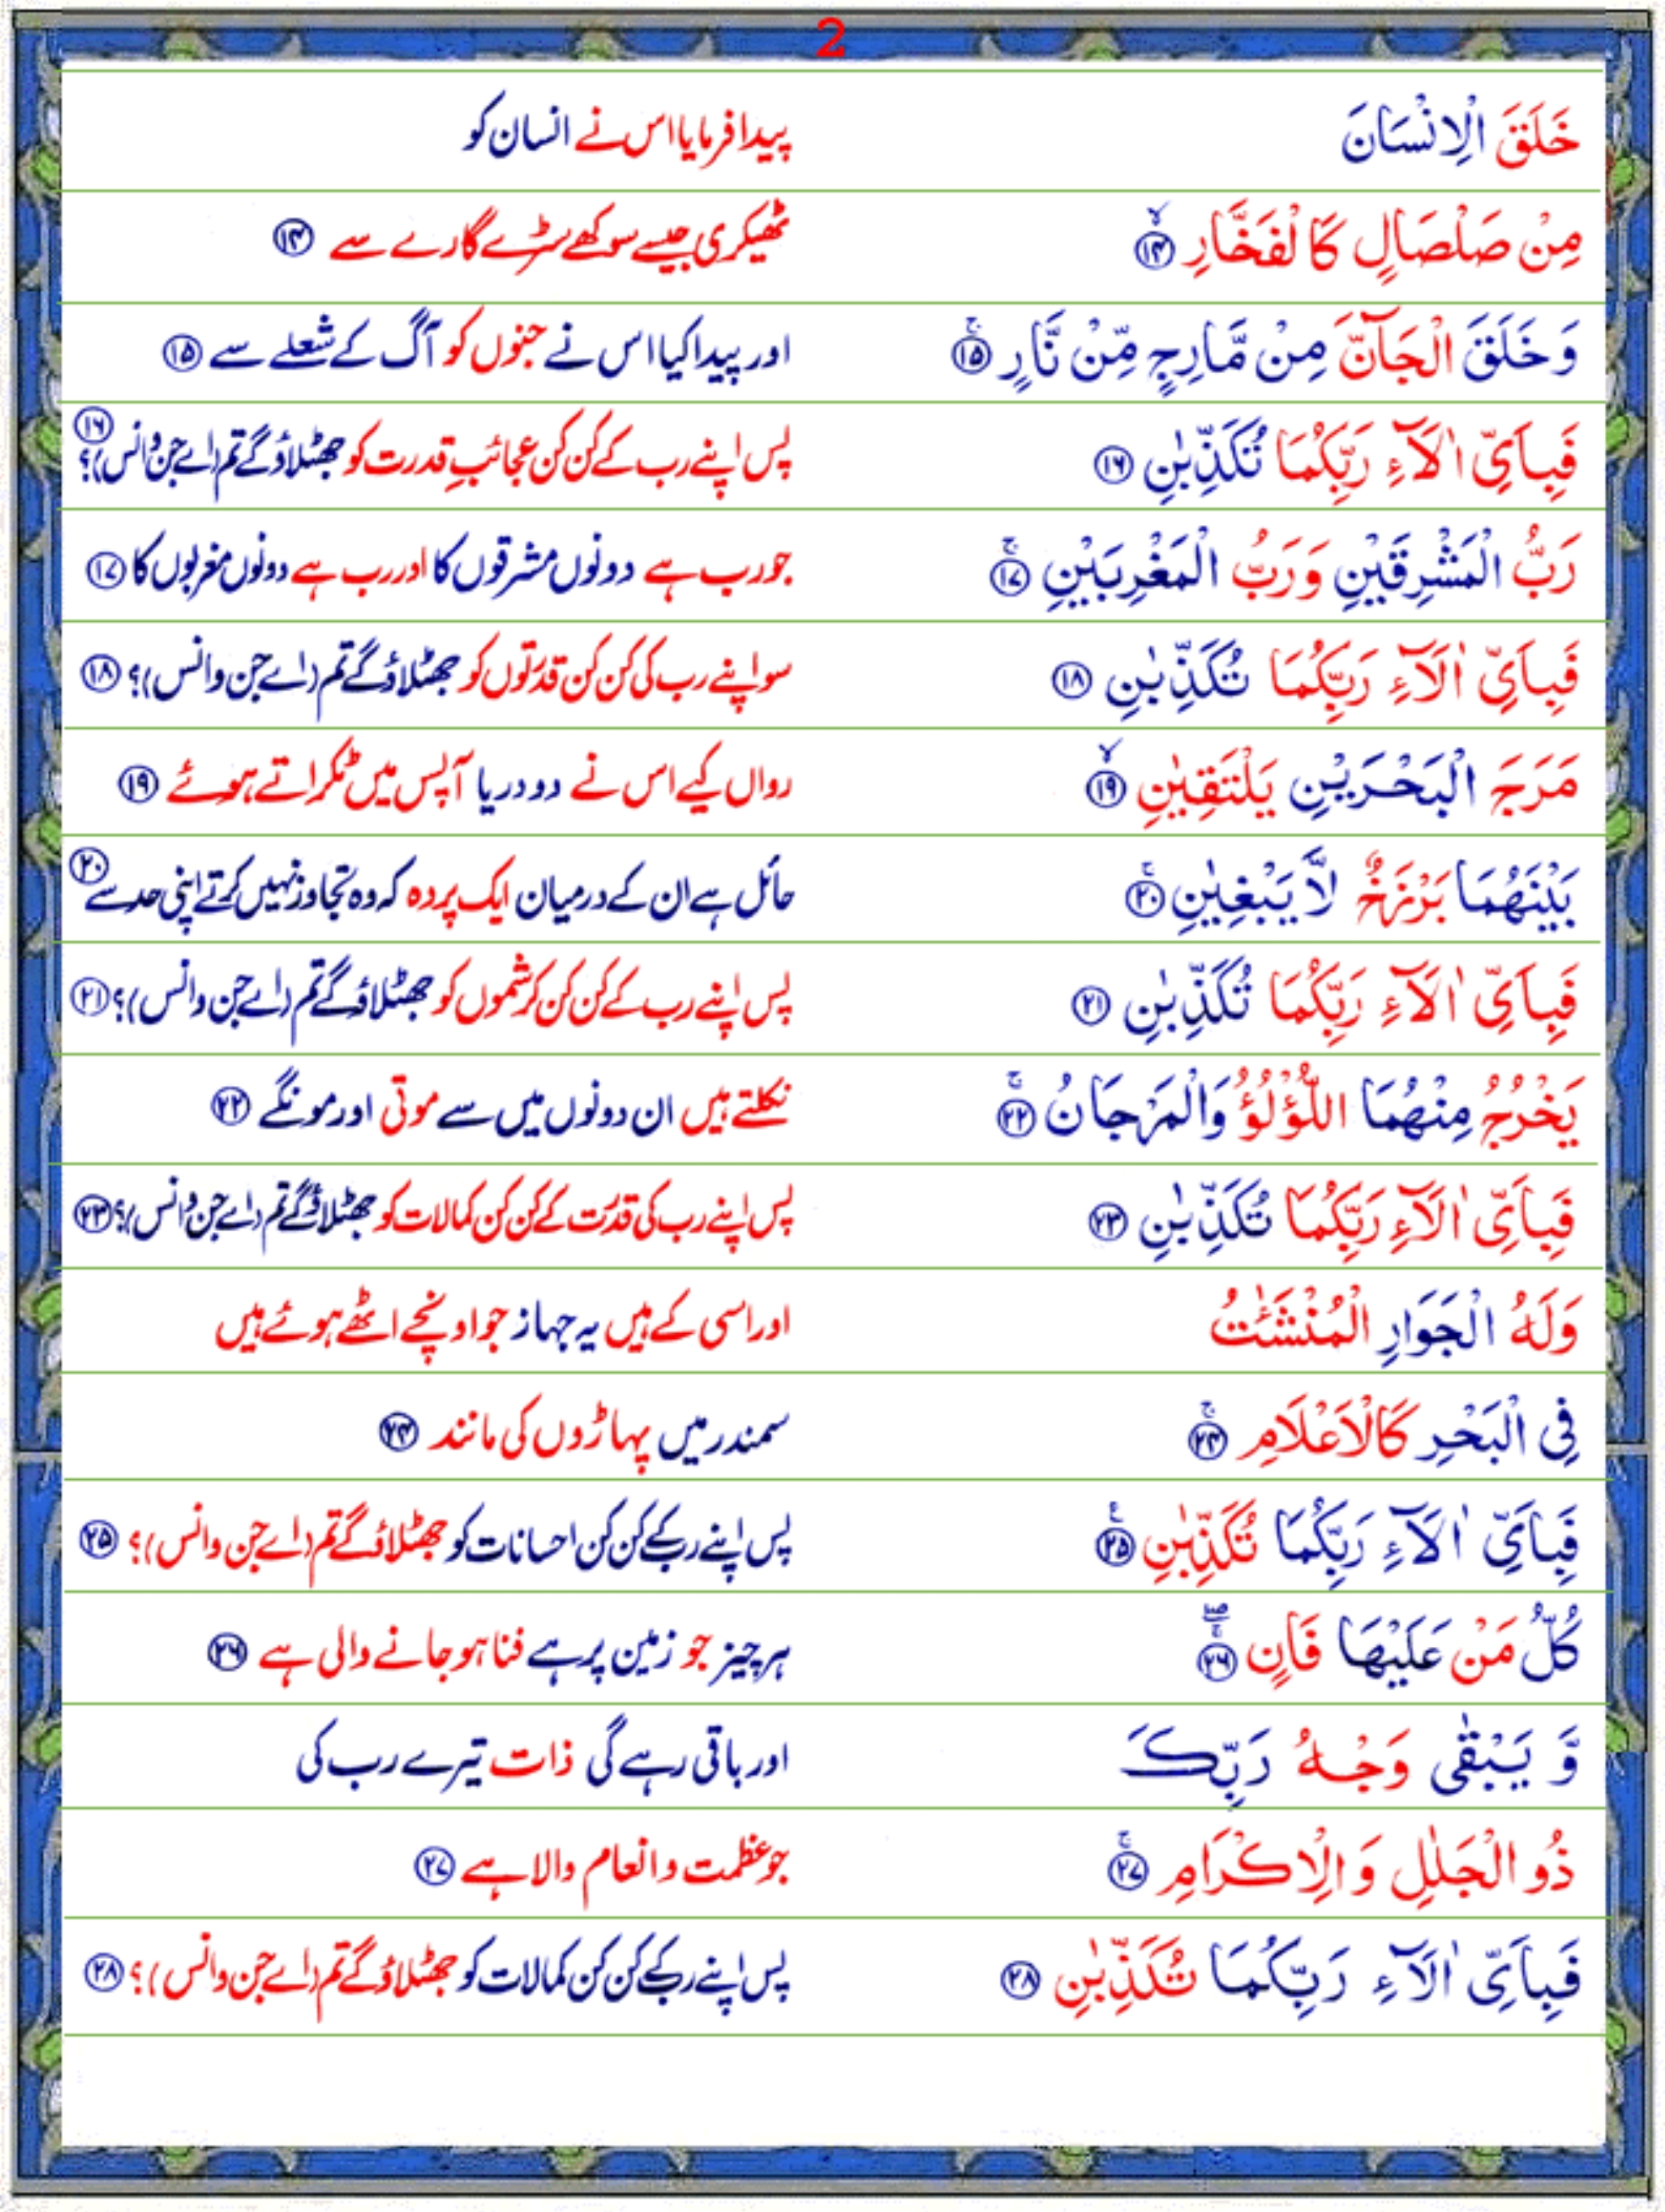 2
خَلَقَ الْاِنْسَانَ پیدا فرمایا اس نے انسان کو
مِنْ صَلْصَالٍ كَالْفَخَّارِ ۙ﴿۱۴﴾ ٹھیکری جیسے سوکھے سڑے گارے سے ﴿۱۴﴾
وَ خَلَقَ الْجَآنَّ مِنْ مَّارِجٍ مِّنْ نَّارٍ ۚ﴿۱۵﴾ اور پیدا کیا اس نے جنوں کو آگ کے شعلے سے ﴿۱۵﴾
فَبِاَىِّ اٰلَآءِ رَبِّكُمَا تُكَذِّبٰنِ ﴿۱۶﴾ پس اپنے رب کے کن کن عجائبِ قدرت کو جھٹلاؤ گے تم (اے جن و انس)؟ ﴿۱۶﴾
رَبُّ الْمَشْرِقَيْنِ وَرَبُّ الْمَغْرِبَيْنِ ۚ﴿۱۷﴾ جو رب ہے دونوں مشرقوں کا اور رب ہے دونوں مغربوں کا ﴿۱۷﴾
فَبِاَىِّ اٰلَآءِ رَبِّكُمَا تُكَذِّبٰنِ ﴿۱۸﴾ سو اپنے رب کی کن کن قدرتوں کو جھٹلاؤ گے تم (اے جن و انس)؟ ﴿۱۸﴾
مَرَجَ الْبَحْرَيْنِ يَلْتَقِيٰنِ ۙ﴿۱۹﴾ رواں کیے اس نے دو دریا آپس میں ٹکراتے ہوئے ﴿۱۹﴾
بَيْنَهُمَا بَرْزَخٌ لَّا يَبْغِيٰنِ ۚ﴿۲۰﴾ حائل ہے ان کے درمیان ایک پردہ کہ وہ تجاوز نہیں کرتے اپنی حد سے ﴿۲۰﴾
فَبِاَىِّ اٰلَآءِ رَبِّكُمَا تُكَذِّبٰنِ ﴿۲۱﴾ پس اپنے رب کے کن کن کرشموں کو جھٹلاؤ گے تم (اے جن و انس)؟ ﴿۲۱﴾
يَخْرُجُ مِنْهُمَا اللُّؤْلُؤُ وَالْمَرْجَانُ ۚ﴿۲۲﴾ نکلتے ہیں ان دونوں میں سے موتی اور مونگے ﴿۲۲﴾
فَبِاَىِّ اٰلَآءِ رَبِّكُمَا تُكَذِّبٰنِ ﴿۲۳﴾ پس اپنے رب کی قدرت کے کن کن کمالات کو جھٹلاؤ گے تم (اے جن و انس)؟ ﴿۲۳﴾
وَلَهُ الْجَوَارِ الْمُنْشَئٰتُ اور اسی کے ہیں یہ جہاز جو اونچے اٹھے ہوئے ہیں
فِى الْبَحْرِ كَالْاَعْلَامِ ۚ﴿۲۴﴾ سمندر میں پہاڑوں کی مانند ﴿۲۴﴾
فَبِاَىِّ اٰلَآءِ رَبِّكُمَا تُكَذِّبٰنِ ﴿۲۵﴾ پس اپنے رب کے کن کن احسانات کو جھٹلاؤ گے تم (اے جن و انس)؟ ﴿۲۵﴾
كُلُّ مَنْ عَلَيْهَا فَانٍ ۚۖ﴿۲۶﴾ ہر چیز جو زمین پر ہے فنا ہو جانے والی ہے ﴿۲۶﴾
وَّ يَبْقٰى وَجْهُ رَبِّكَ اور باقی رہے گی ذات تیرے رب کی
ذُو الْجَلٰلِ وَ الْاِكْرَامِ ۚ﴿۲۷﴾ جو عظمت و انعام والا ہے ﴿۲۷﴾
فَبِاَىِّ اٰلَآءِ رَبِّكُمَا تُكَذِّبٰنِ ﴿۲۸﴾ پس اپنے رب کے کن کن کمالات کو جھٹلاؤ گے تم (اے جن و انس)؟ ﴿۲۸﴾